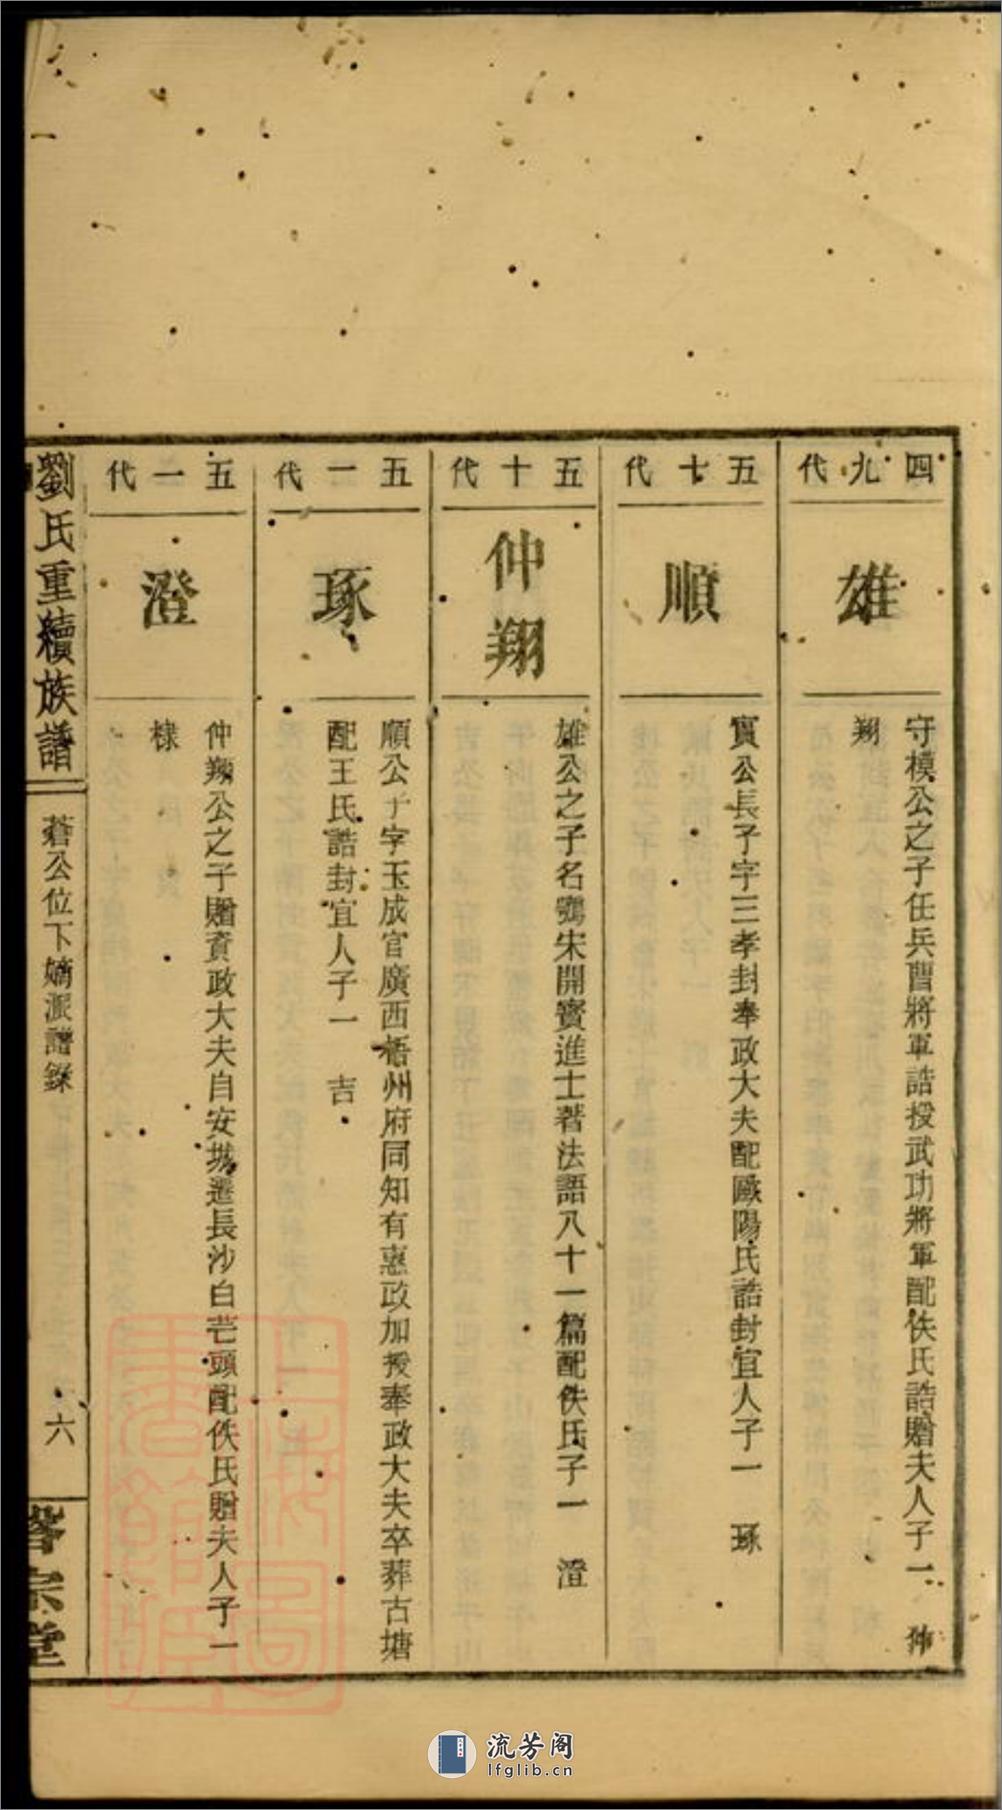 四九代
雄
守模公之子任兵曹將軍誥授武功將軍配佚氏誥贈夫人子一 仲
翔
五七代
順
實公長子字三孝封奉政大夫配歐陽氏誥封宜人子一 琢
五十代
仲翔
雄公之子名鶚宋開寶進士著法語八十一篇配佚氏子一 澄
五一代
琢
順公子字玉成官廣西梧州府同知有惠政加授奉政大夫卒葬古塘
配王氏誥封宜人子一 吉
五一代
澄
仲翔公之子贈資政大夫自安城遷長沙白芒頭配佚氏贈夫人子一
棣
劉氏重續族譜
蒼公位下嫡派譜錄
六
宗堂
流芳阁
lfglib.cn